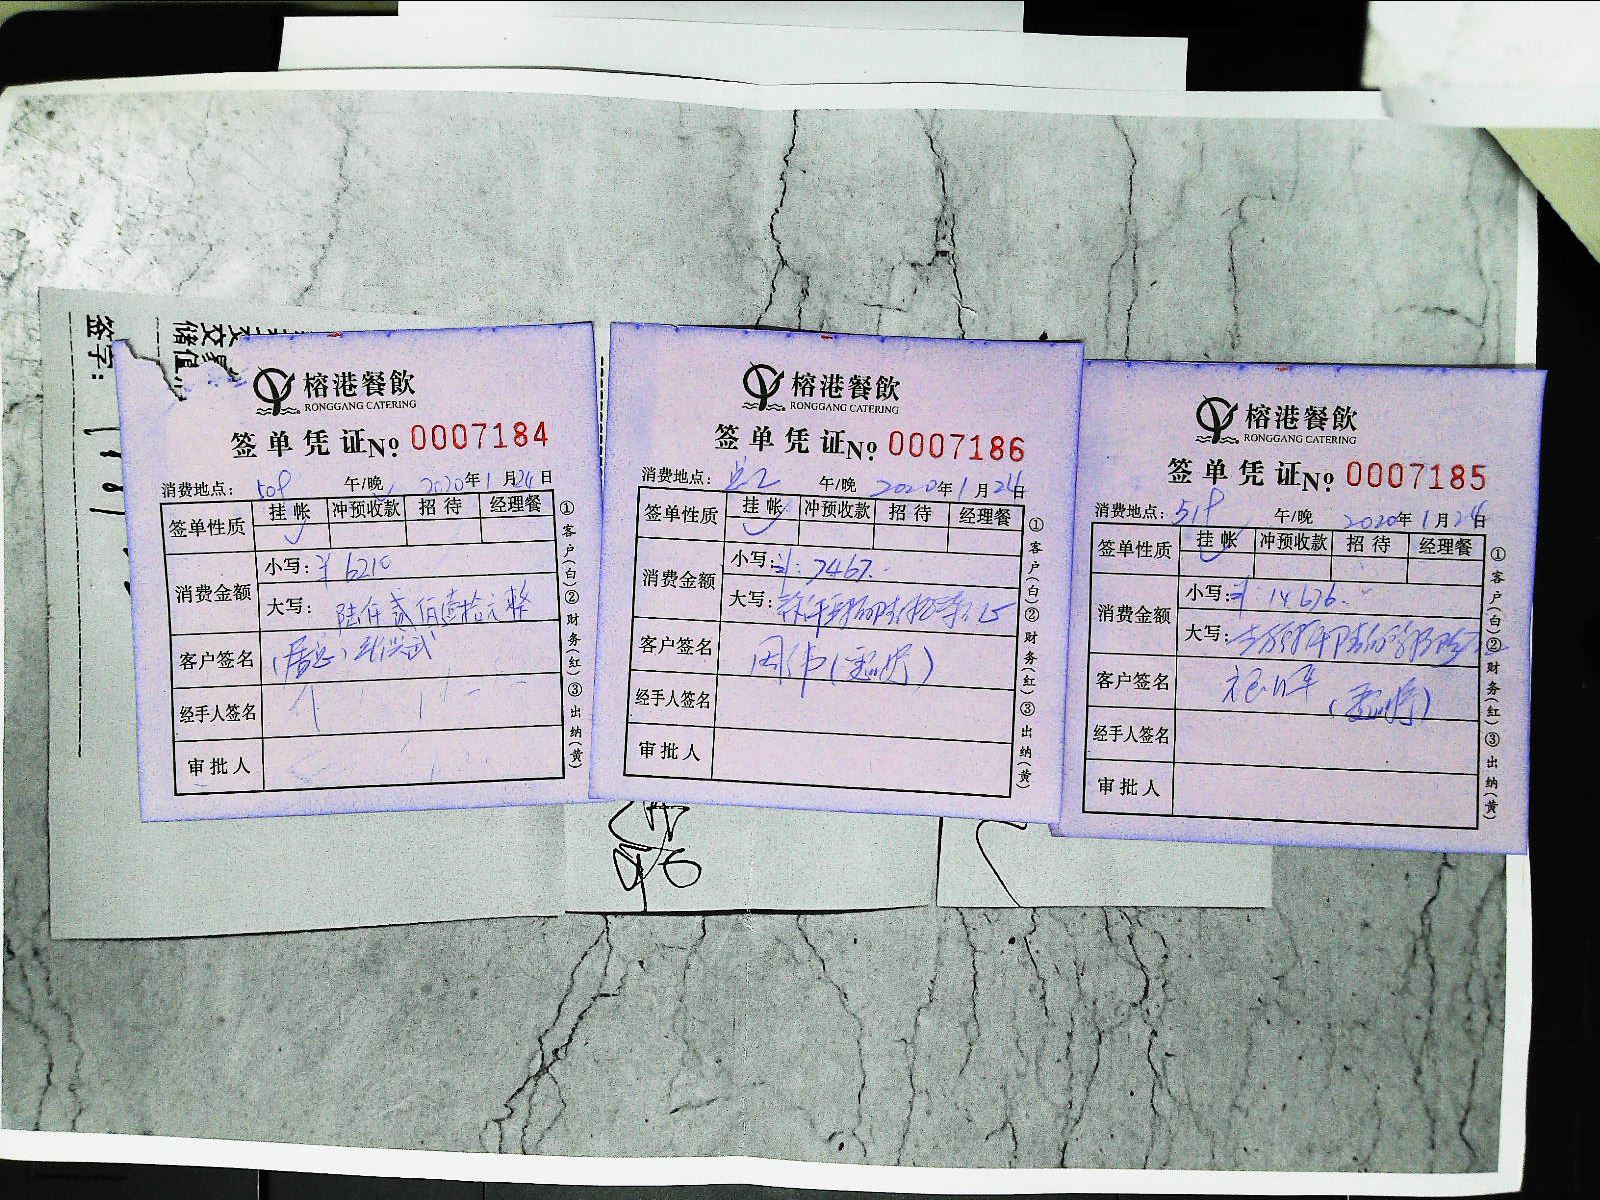 签字：
榕港餐飲
RONGGANG CATERING
签单凭证 No 0007184
消费地点： 508 午/晚 2020年1月24日
签单性质 挂帐 冲预收款 招待 经理餐
消费金额 小写：¥6210
大写：陆仟贰佰壹拾元整
客户签名
经手人签名
审批人
①客户(白)②财务(红)③出纳(黄)
榕港餐飲
RONGGANG CATERING
签单凭证 No 0007186
消费地点： 午/晚 2020年1月24日
签单性质 挂帐 冲预收款 招待 经理餐
消费金额 小写：¥7467.
大写：
客户签名
经手人签名
审批人
①客户(白)②财务(红)③出纳(黄)
榕港餐飲
RONGGANG CATERING
签单凭证 No 0007185
消费地点： 518 午/晚 2020年1月24日
签单性质 挂帐 冲预收款 招待 经理餐
消费金额 小写：¥14676.
大写：
客户签名
经手人签名
审批人
①客户(白)②财务(红)③出纳(黄)